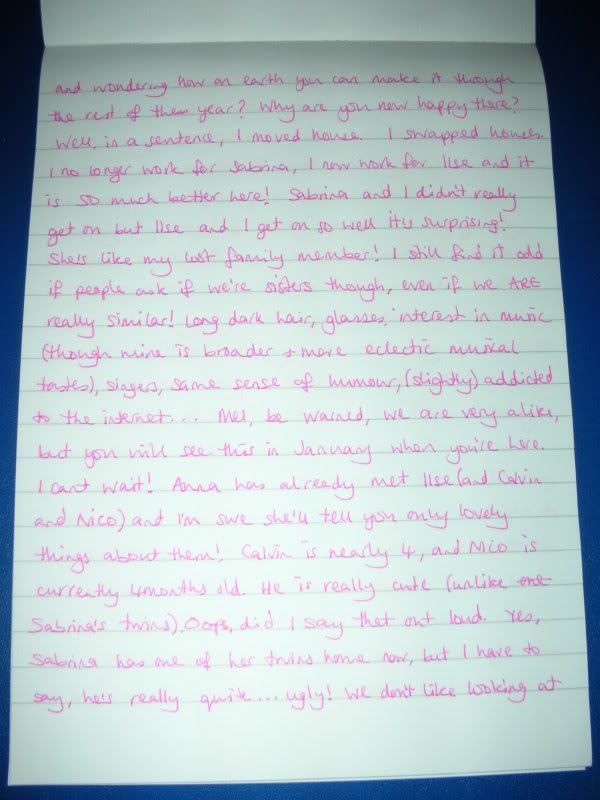 and wondering how on earth you can make it through
the rest of the year? Why are you now happy there?
Well, in a sentence, I moved house. I swapped houses.
I no longer work for Sabrina, I now work for Ilse and it
is SO much better here! Sabrina and I didn't really
get on but Ilse and I get on so well it's surprising!
She's like my lost family member! I still find it odd
if people ask if we're sisters though, even if we ARE
really similar! Long dark hair, glasses, interest in music
(though mine is broader + more eclectic musical
tastes), singers, same sense of humour, (slightly) addicted
to the internet... Mel, be warned, we are very alike,
but you will see this in January when you're here.
I can't wait! Anna has already met Ilse (and Calvin
and Nico) and I'm sure she'll tell you only lovely
things about them! Calvin is nearly 4, and Nico is
currently 4months old. He is really cute (unlike one
Sabrina's twins). Oops, did I say that out loud. Yes,
Sabrina has one of her twins home now, but I have to
say, he's really quite... ugly! We don't like looking at